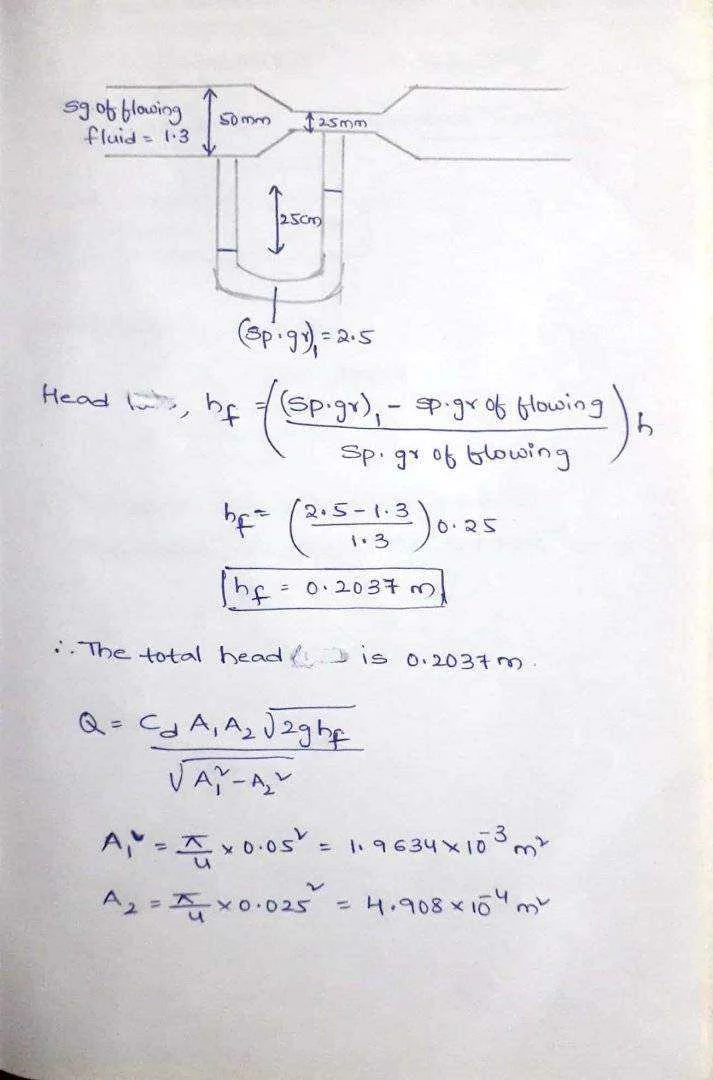 sg of flowing
fluid = 1.3
50mm
25mm
25cm
(Sp.gr)₁ = 2.5
Head , hf = ((Sp.gr)₁ - sp.gr of flowing / Sp. gr of flowing) h
hf = (2.5-1.3 / 1.3) 0.25
hf = 0.2037 m
∴ The total head is 0.2037 m.
Q = Cd A₁ A₂ √2ghf / √A₁² - A₂²
A₁² = π/4 × 0.05² = 1.9634 × 10⁻³ m²
A₂ = π/4 × 0.025² = 4.908 × 10⁻⁴ m²